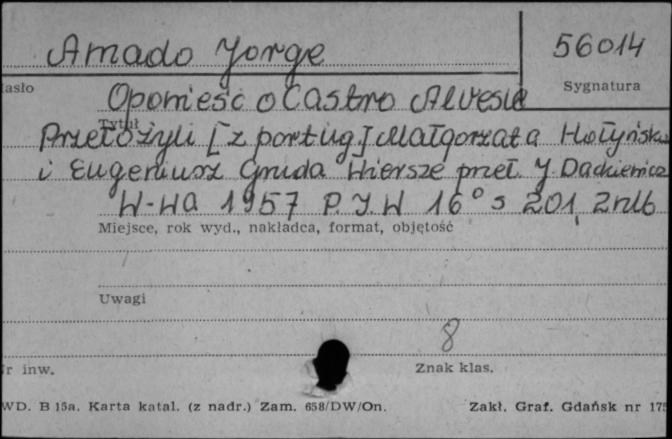 Amado Jorge
56014
asło
Sygnatura
Opowieść o Castro Alvesie
Tytuł
Przełożyli [z portug.] Małgorzata Hołyńska
i Eugeniusz Gruda Wiersze przeł. J. Dackiewicz
W-wa 1957 P.I.W 16° s 201, 2nlb
Miejsce, rok wyd., nakładca, format, objętość
Uwagi
8
r inw.
Znak klas.
WD. B 15a. Karta katal. (z nadr.) Zam. 658/DW/On.
Zakł. Graf. Gdańsk nr 175